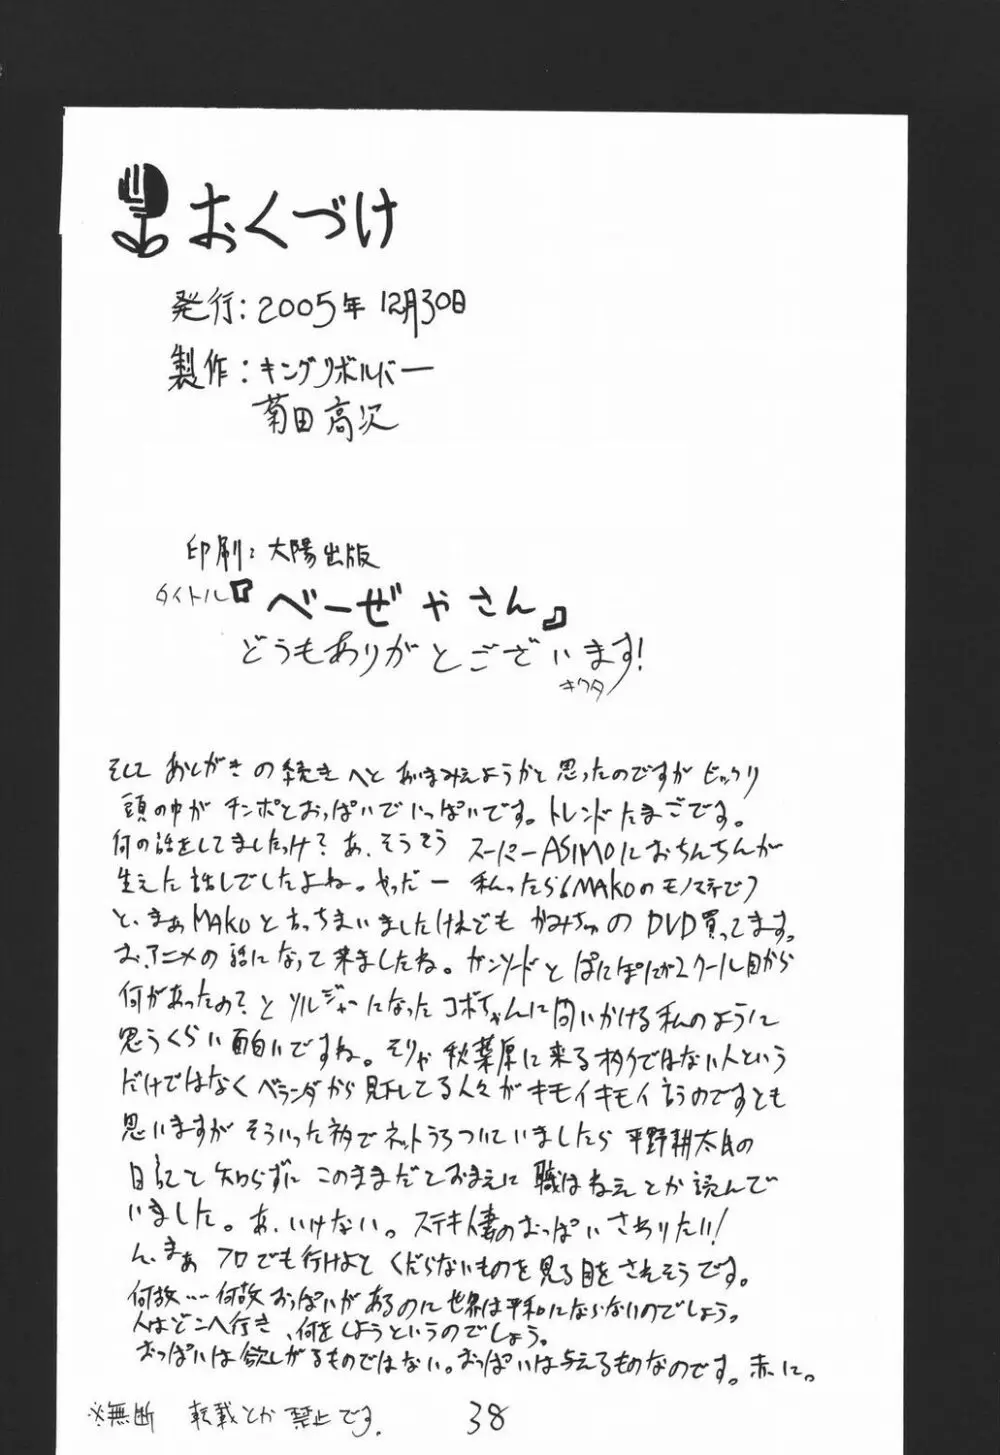 おくづけ
発行：2005年12月30日
製作：キングリボルバー
菊田高次
印刷：大陽出版
タイトル『べーぜやさん』
どうもありがとございます！
キクタ
そして あとがきの続きへと あいまみえようかと思ったのですが ビックリ
頭の中が チンポとおっぱいでいっぱいです。トレンドたまごです。
何の話をしてましたっけ？あ、そうそう スーパーASIMOにおちんちんが
生えた話しでしたよね。やっだー 私ったら MAKOのモノマネで
と、まぁMAKOと言っちまいましたけれども かみちゅのDVD買ってます。
お、アニメの話になって来ましたね。ガンソードと ぱにぽにが2クール目から
何があったの？と ソルジャーになったコボちゃんに問いかける私のように
思うくらい面白いですね。そりゃ秋葉原に来るオタクではない人という
だけではなく ベランダから見下してる人々が キモイキモイ言うのですとも
思いますが そういった訳でネットうろついていましたら 平野耕太氏の
日記と知らずに このままだとおまえに職はねぇ とか読んで
いました。あ、いけない。ステキ人妻のおっぱいさわりたい！
ん、まぁ プロでも行けよと くだらないものを見る目をされそうです。
何故…何故おっぱいがあるのに世界は平和にならないのでしょう。
人はどこへ行き、何をしようというのでしょう。
おっぱいは欲しがるものではない。おっぱいは与えるものなのです。赤に。
※無断 転載とか禁止です。
38